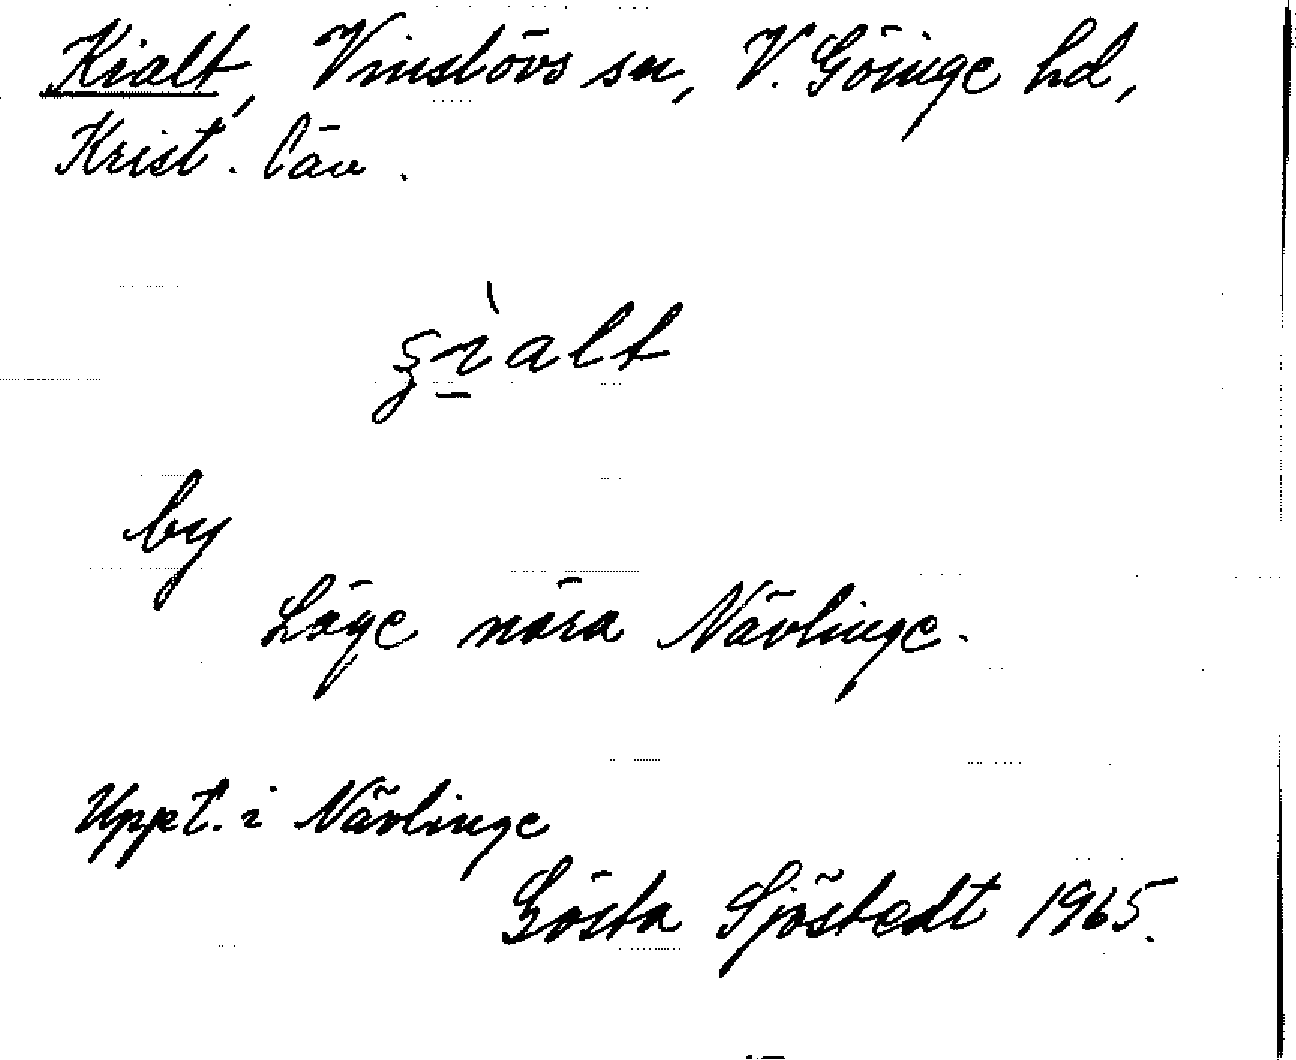 Kialt, Vinslövs sn, V. Göinge hd,
Krist. län.
ʂì̱alt
by
Läge nära Nävlinge.
Uppt. i Nävlinge
Gösta Sjöstedt 1965.